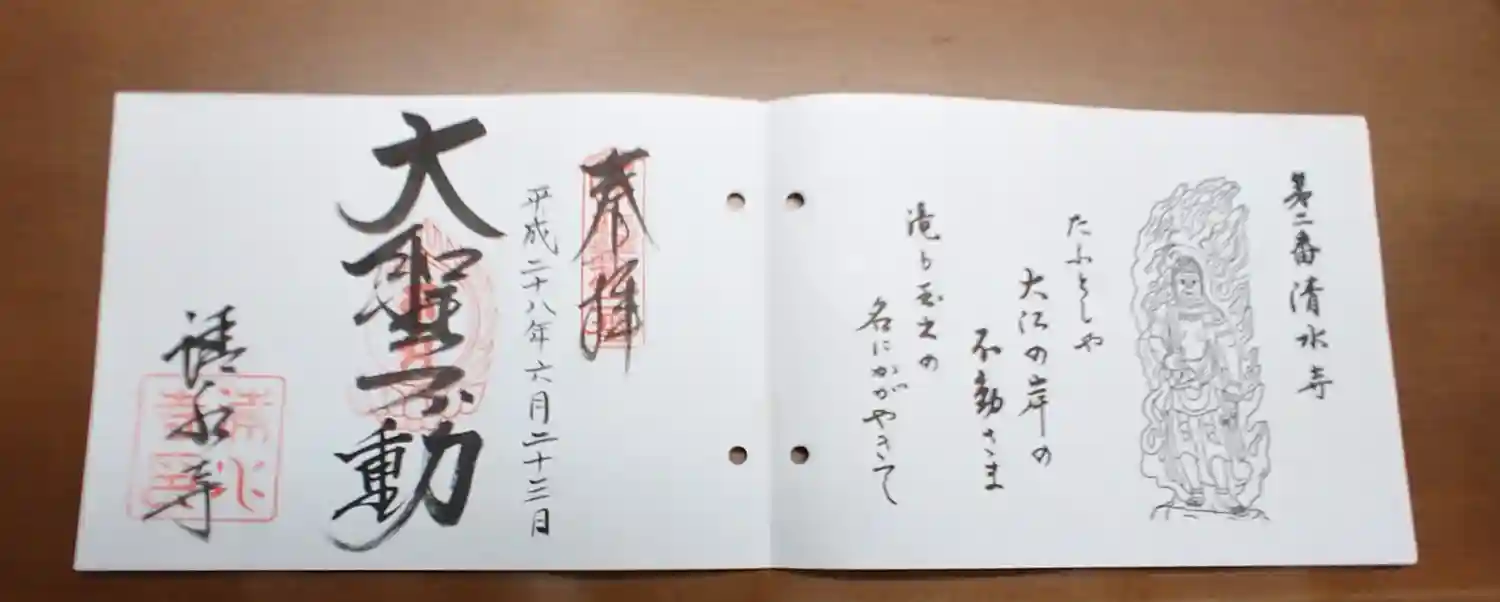 第二番清水寺
たふとしや
大江の岸の
不動さま
滝も玉出の
名にかがやきて
奉拝
平成二十八年六月二十三日
大聖不動
清水寺
清水
寺印